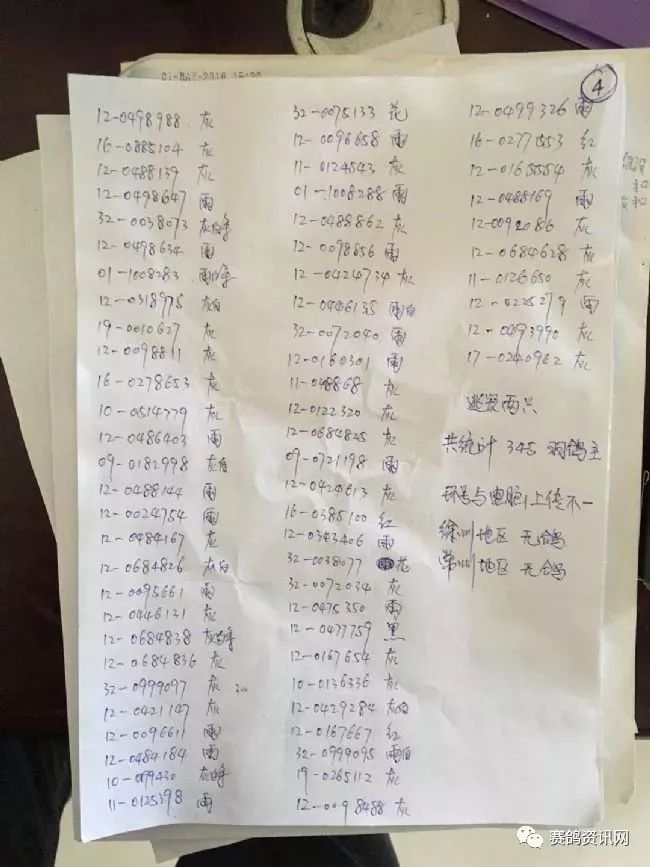 ④
12-0498988 灰
16-0885104 灰
12-0488139 灰
12-0498647 雨
32-0038073 灰白条
12-0498634 雨
01-1008283 雨白条
12-0318975 灰白
19-0010627 灰
12-0098811 灰
16-0278653 灰
10-0514779 灰
12-0486403 雨
09-0182998 灰白
12-0488144 雨
12-0024754 雨
12-0484167 灰
12-0684826 灰白
12-0095661 雨
12-0446131 灰
12-0684838 灰白条
12-0684836 灰
32-0999097 灰
12-0421147 灰
12-0096611 雨
12-0484184 雨
10-079430 灰白条
11-0125398 雨
32-0075133 花
12-0096658 雨
11-0124543 灰
01-1008288 雨
12-0488862 灰
12-0098856 雨
12-0424734 灰
12-0446135 雨白
32-0072040 雨
12-0160301 雨
11-048868 灰
12-0122320 灰
12-0684825 灰
09-0721198 雨
12-0424613 灰
16-0385100 红
12-0343406 雨
32-0038077 花
32-0072034 灰
12-0475350 雨
12-0477759 黑
12-0167654 灰
10-0136336 灰
12-0429284 灰白
12-0167667 红
32-0999095 雨白
19-0265112 灰
12-0098488 灰
12-0499326 雨
16-0277553 红
12-0165554 灰
12-0488169 雨
12-0092086 灰
12-0684628 灰
11-0126650 灰
12-0225279 雨
12-0493990 灰
17-0240962 灰
逃笼两只
共统计 345 羽鸽主
环号与电脑上传不一
徐州地区 无鸽
常州地区 无鸽
赛鸽资讯网